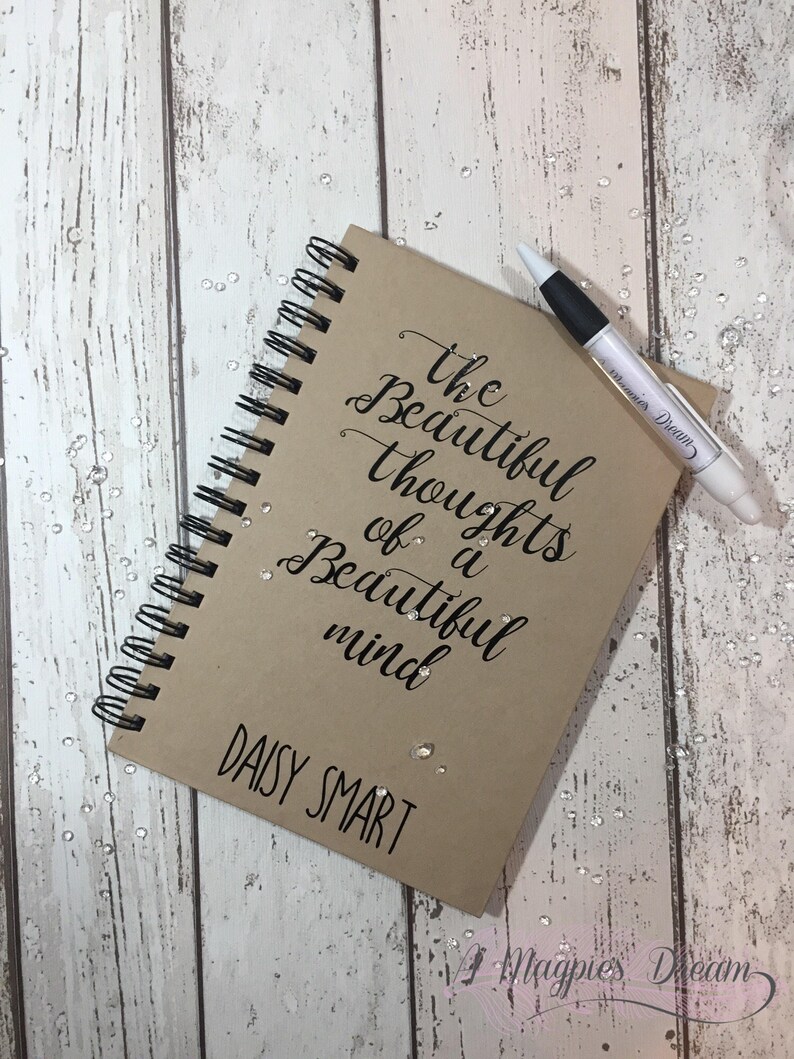 the
Beautiful
thoughts
of a
Beautiful
mind
DAISY SMART
A Magpies Dream
A Magpies Dream